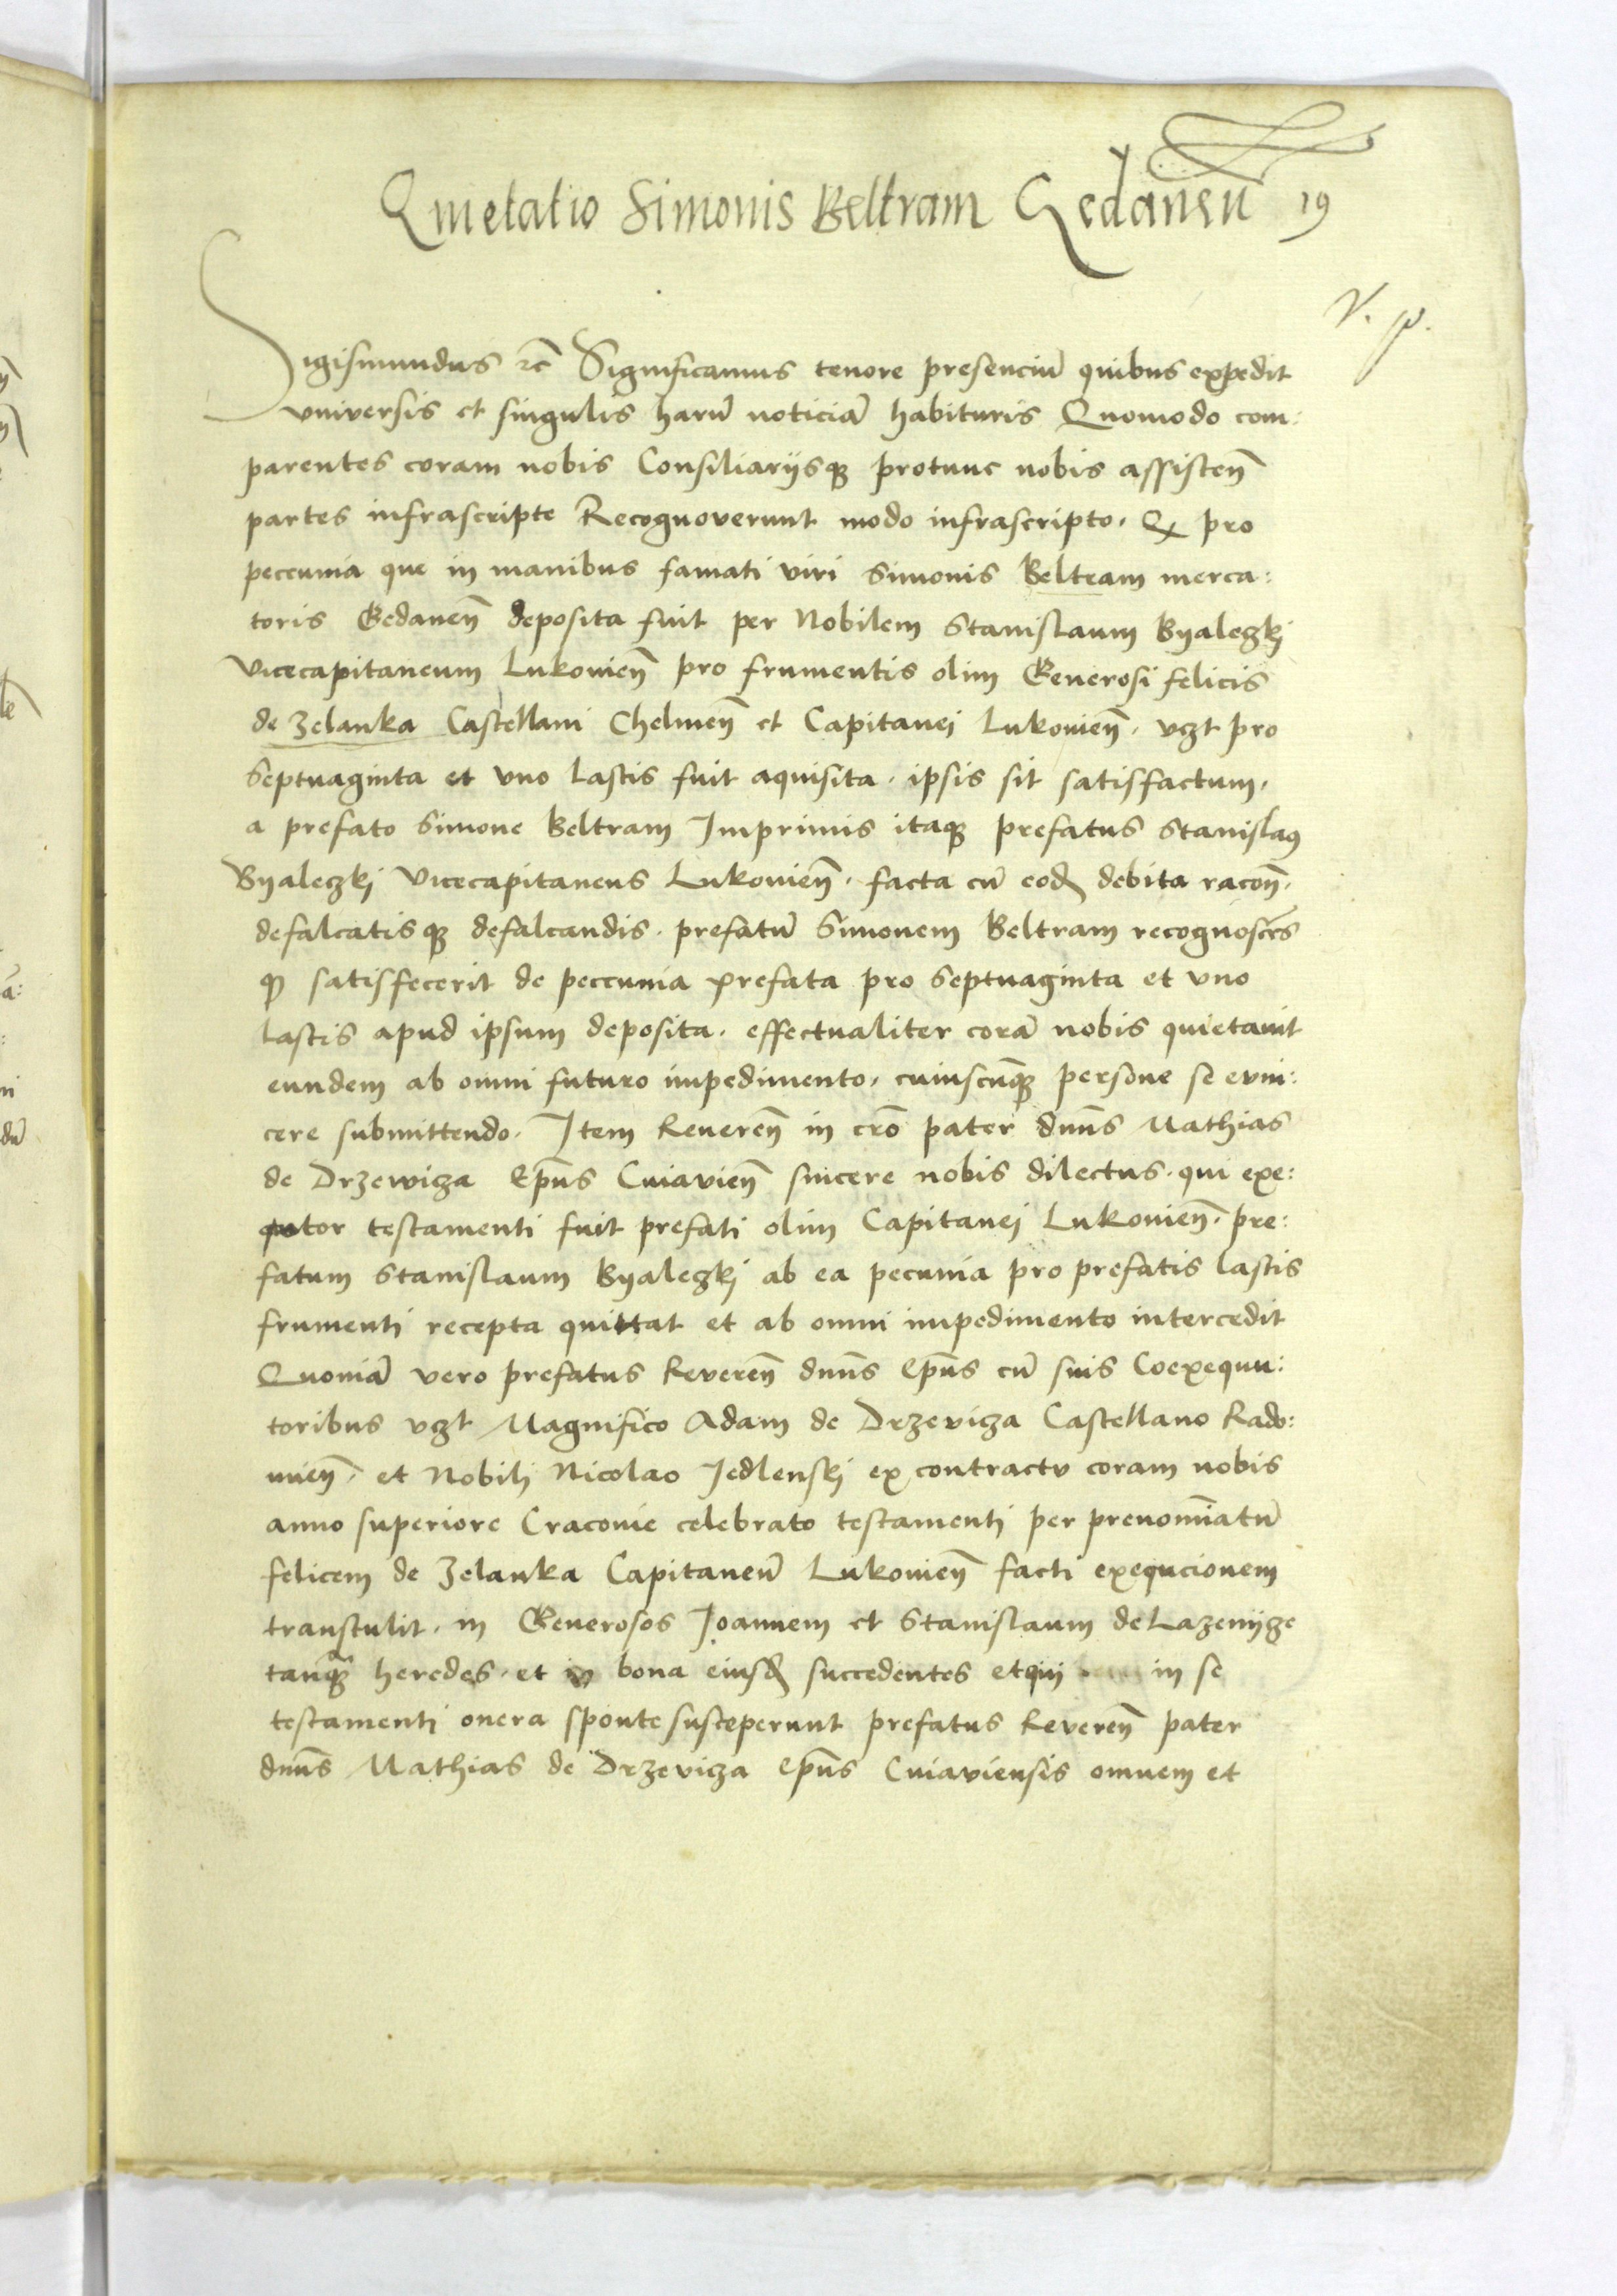 Quietatio Simonis Beltram Gedanen̄ 19
V. p.
Sigismundus ꝛc̄ Significamus tenore presenciū quibus expedit
vniversis et singulis harū noticiā habituris Quomodo com:
parentes coram nobis Consiliarijsqꝫ protunc nobis assisten̄
partes infrascripte Recognoverunt modo infrascripto. Qꝫ pro
peccunia que in manibus famati viri Simonis Beltram merca:
toris Gedanen̄ deposita fuit per Nobilem Stanislaum Byaleczkj
Vicecapitaneum Lukovien̄ pro frumentis olim Generosi felicis
de Zelanka Castellani Chelmen̄ et Capitanej Lukovien̄. vꝫt pro
Septuaginta et vno lastis fuit aquisita. ipsis sit satisfactum.
a prefato Simone Beltram Imprimis itaqꝫ prefatus Stanislaꝰ
Byaleczkj Vicecapitaneus Lukovien̄. facta cū eodꝫ debita racon̄.
defalcatisqꝫ defalcandis. prefatū Simonem Beltram recognoscēs
qꝫ satisfecerit de peccunia prefata pro Septuaginta et vno
lastis apud ipsum deposita. effectualiter corā nobis quietavit
eundem ab omni futuro impedimento, cuiuscūqꝫ persone se evin:
cere submittendo. Item Reveren̄ in cr̄o pater dn̄us Mathias
de Drzewicza Ep̄us Cuiavien̄ sincere nobis dilectus. qui exe:
qutor testamenti fuit prefati olim Capitanej Lukovien̄. pre:
fatum Stanislaum Byaleczkj ab ea pecunia pro prefatis lastis
frumenti recepta quittat et ab omni impedimento intercedit
Quoniā vero prefatus Reveren̄ dn̄us Ep̄us cū suis Coexequu:
toribus vꝫt Magnifico Adam de Drzevicza Castellano Rado:
mien̄. et Nobilj Nicolao Jedlenskj ex contractu coram nobis
anno superiore Cracovie celebrato testamenti per prenominatū
felicem de Zelanka Capitaneū Lukovien̄ facti exequcionem
transtulit. in Generosos Joannem et Stanislaum de Lazenijcze
tanqꝫ heredes. et in bona eiusdꝫ succedentes et qui in se
testamenti onera sponte susceperunt prefatus Reveren̄ pater
dn̄us Mathias de Drzevicza Ep̄us Cuiaviensis omnem et